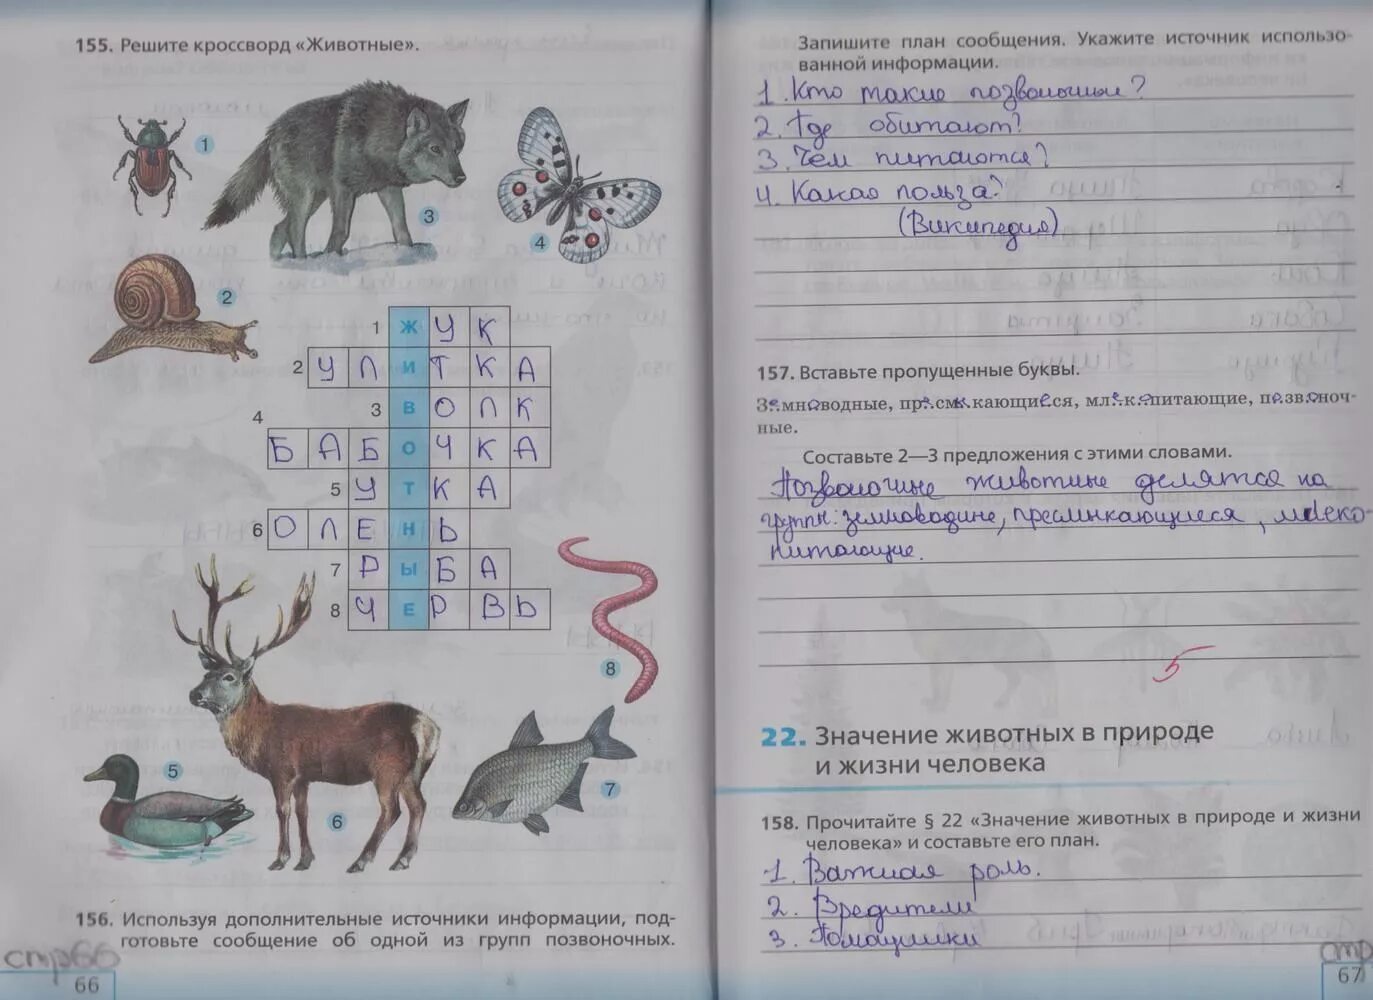 155. Решите кроссворд «Животные».
1
3
4
2
1 ЖУК
2 УЛИТКА
3 ВОЛК
4
БАБОЧКА
5 УТКА
6 ОЛЕНЬ
7 РЫБА
8 ЧЕРВЬ
8
5
6
7
156. Используя дополнительные источники информации, под-
готовьте сообщение об одной из групп позвоночных.
стр66
66
Запишите план сообщения. Укажите источник использо-
ванной информации.
1. Кто такие позвоночные?
2. Где обитают?
3. Чем питаются?
4. Какая польза?
(Википедия)
157. Вставьте пропущенные буквы.
Земноводные, пресмыкающиеся, млекопитающие, позвоноч-
ные.
Составьте 2—3 предложения с этими словами.
Позвоночные животные делятся на
группы: земноводные, пресмыкающиеся, млеко-
питающие.
5
22. Значение животных в природе
и жизни человека
158. Прочитайте § 22 «Значение животных в природе и жизни
человека» и составьте его план.
1. Важная роль.
2. Вредители
3. Помощники
стр
67